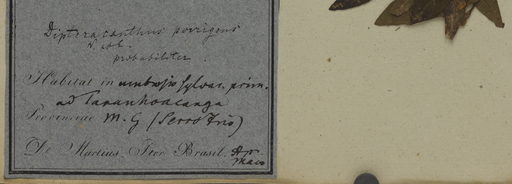 Dipteracanthus porrigens
N. ab E.
probabiliter.
Habitat in umbrosis sylvar. prim.
ad Tananhoacanga
Provinciae M. G (Serro Frio)
De Martius Iter Brasil.